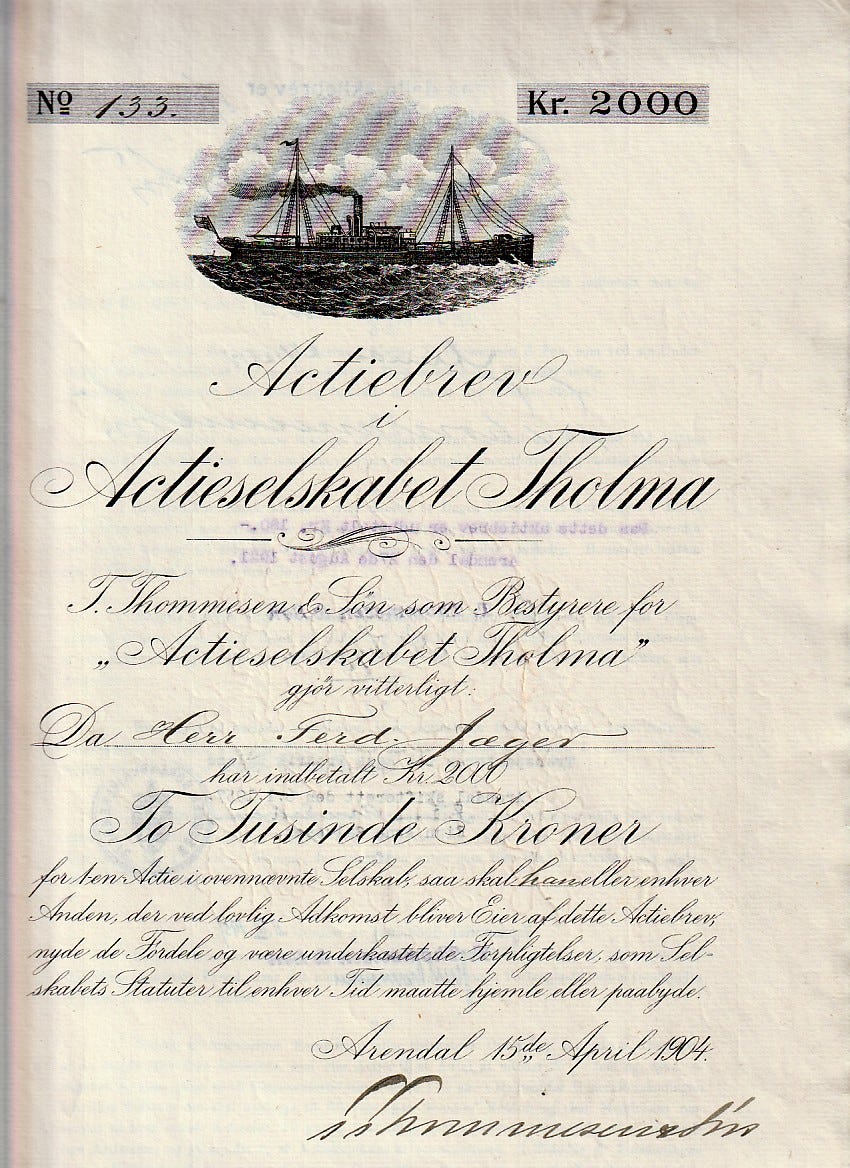 No 133.
Kr. 2000
Actiebrev
i
Actieselskabet Tholma
T. Thommesen & Søn som Bestyrere for
„Actieselskabet Tholma”
gjør vitterligt:
Da Herr Ferd. Jæger
har indbetalt Kr. 2000
To Tusinde Kroner
for 1 en Actie i ovennævnte Selskab, saa skal han eller enhver
Anden, der ved lovlig Adkomst bliver Eier af dette Actiebrev,
nyde de Fordele og være underkastet de Forpligtelser, som Sel-
skabets Statuter til enhver Tid maatte hjemle eller paabyde.
Arendal 15de April 1904.
T Thommesen & Søn